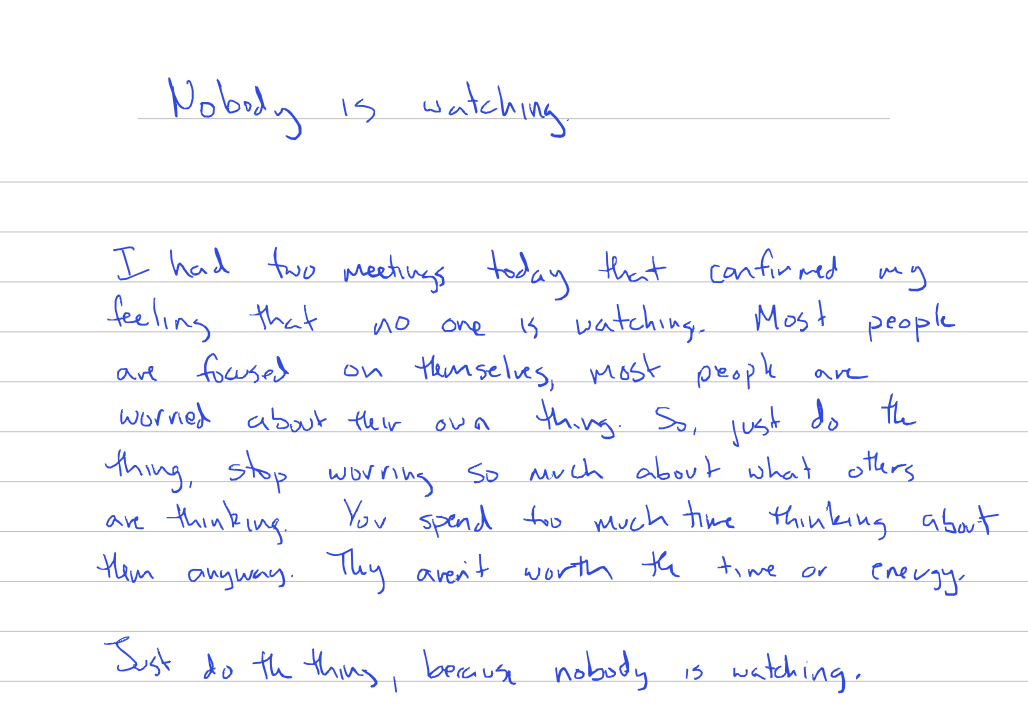 Nobody is watching.
I had two meetings today that confirmed my
feeling that no one is watching. Most people
are focused on themselves, most people are
worried about their own thing. So, just do the
thing, stop worring so much about what others
are thinking. You spend too much time thinking about
them anyway. They aren't worth the time or energy.
Just do the thing, because nobody is watching.